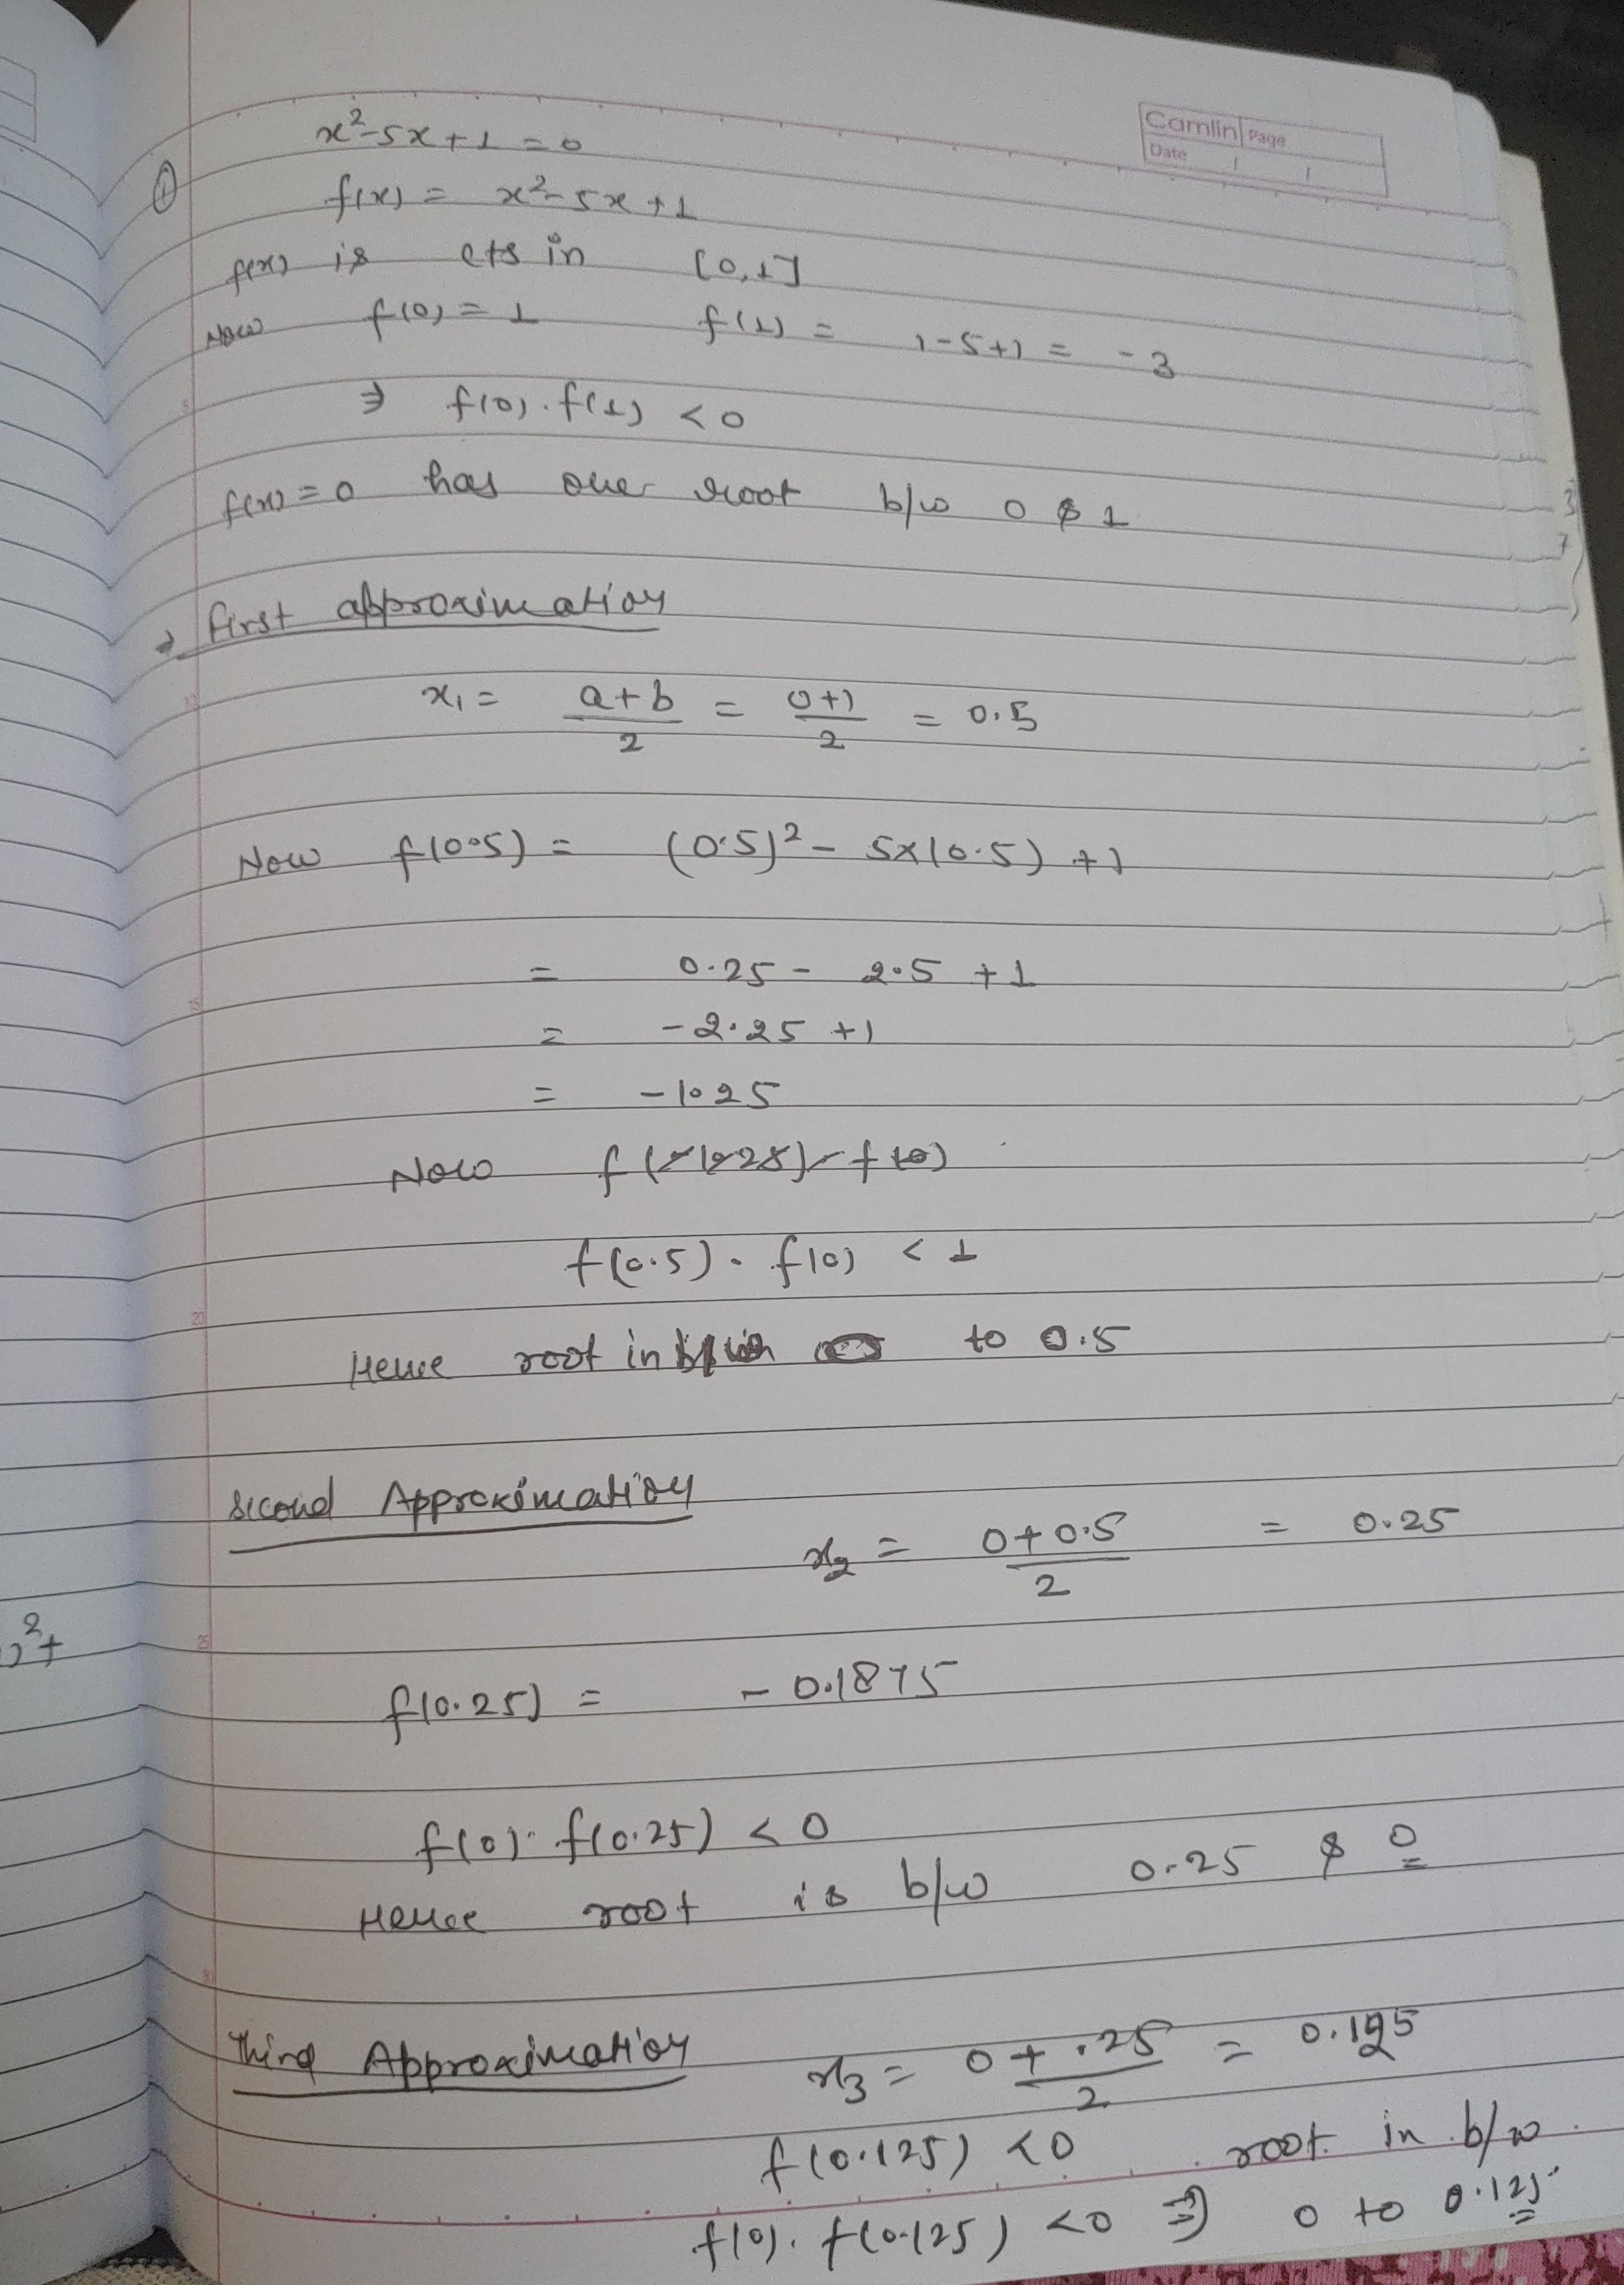 Camlin Page
Date / /
x²-5x+1=0
① f(x) = x²-5x+1
f(x) is cts in [0,1]
Now f(0) = 1 f(1) = 1-5+1 = -3
⇒ f(0).f(1) <0
f(x)=0 has one root b/w 0 & 1
→ first approximation
x₁ = a+b/2 = 0+1/2 = 0.5
Now f(0.5) = (0.5)² - 5x(0.5) +1
= 0.25 - 2.5 +1
= -2.25 +1
= -1.25
Now
f(0.5) . f(0) < 1
Hence root in to 0.5
Second Approximation
x₂ = 0+0.5/2 = 0.25
f(0.25) = -0.1875
f(0). f(0.25) <0
Hence root is b/w 0.25 & 0
Third Approximation x₃ = 0+.25/2 = 0.125
f(0.125) <0 root in b/w
f(0). f(0.125) <0 ⇒ 0 to 0.125